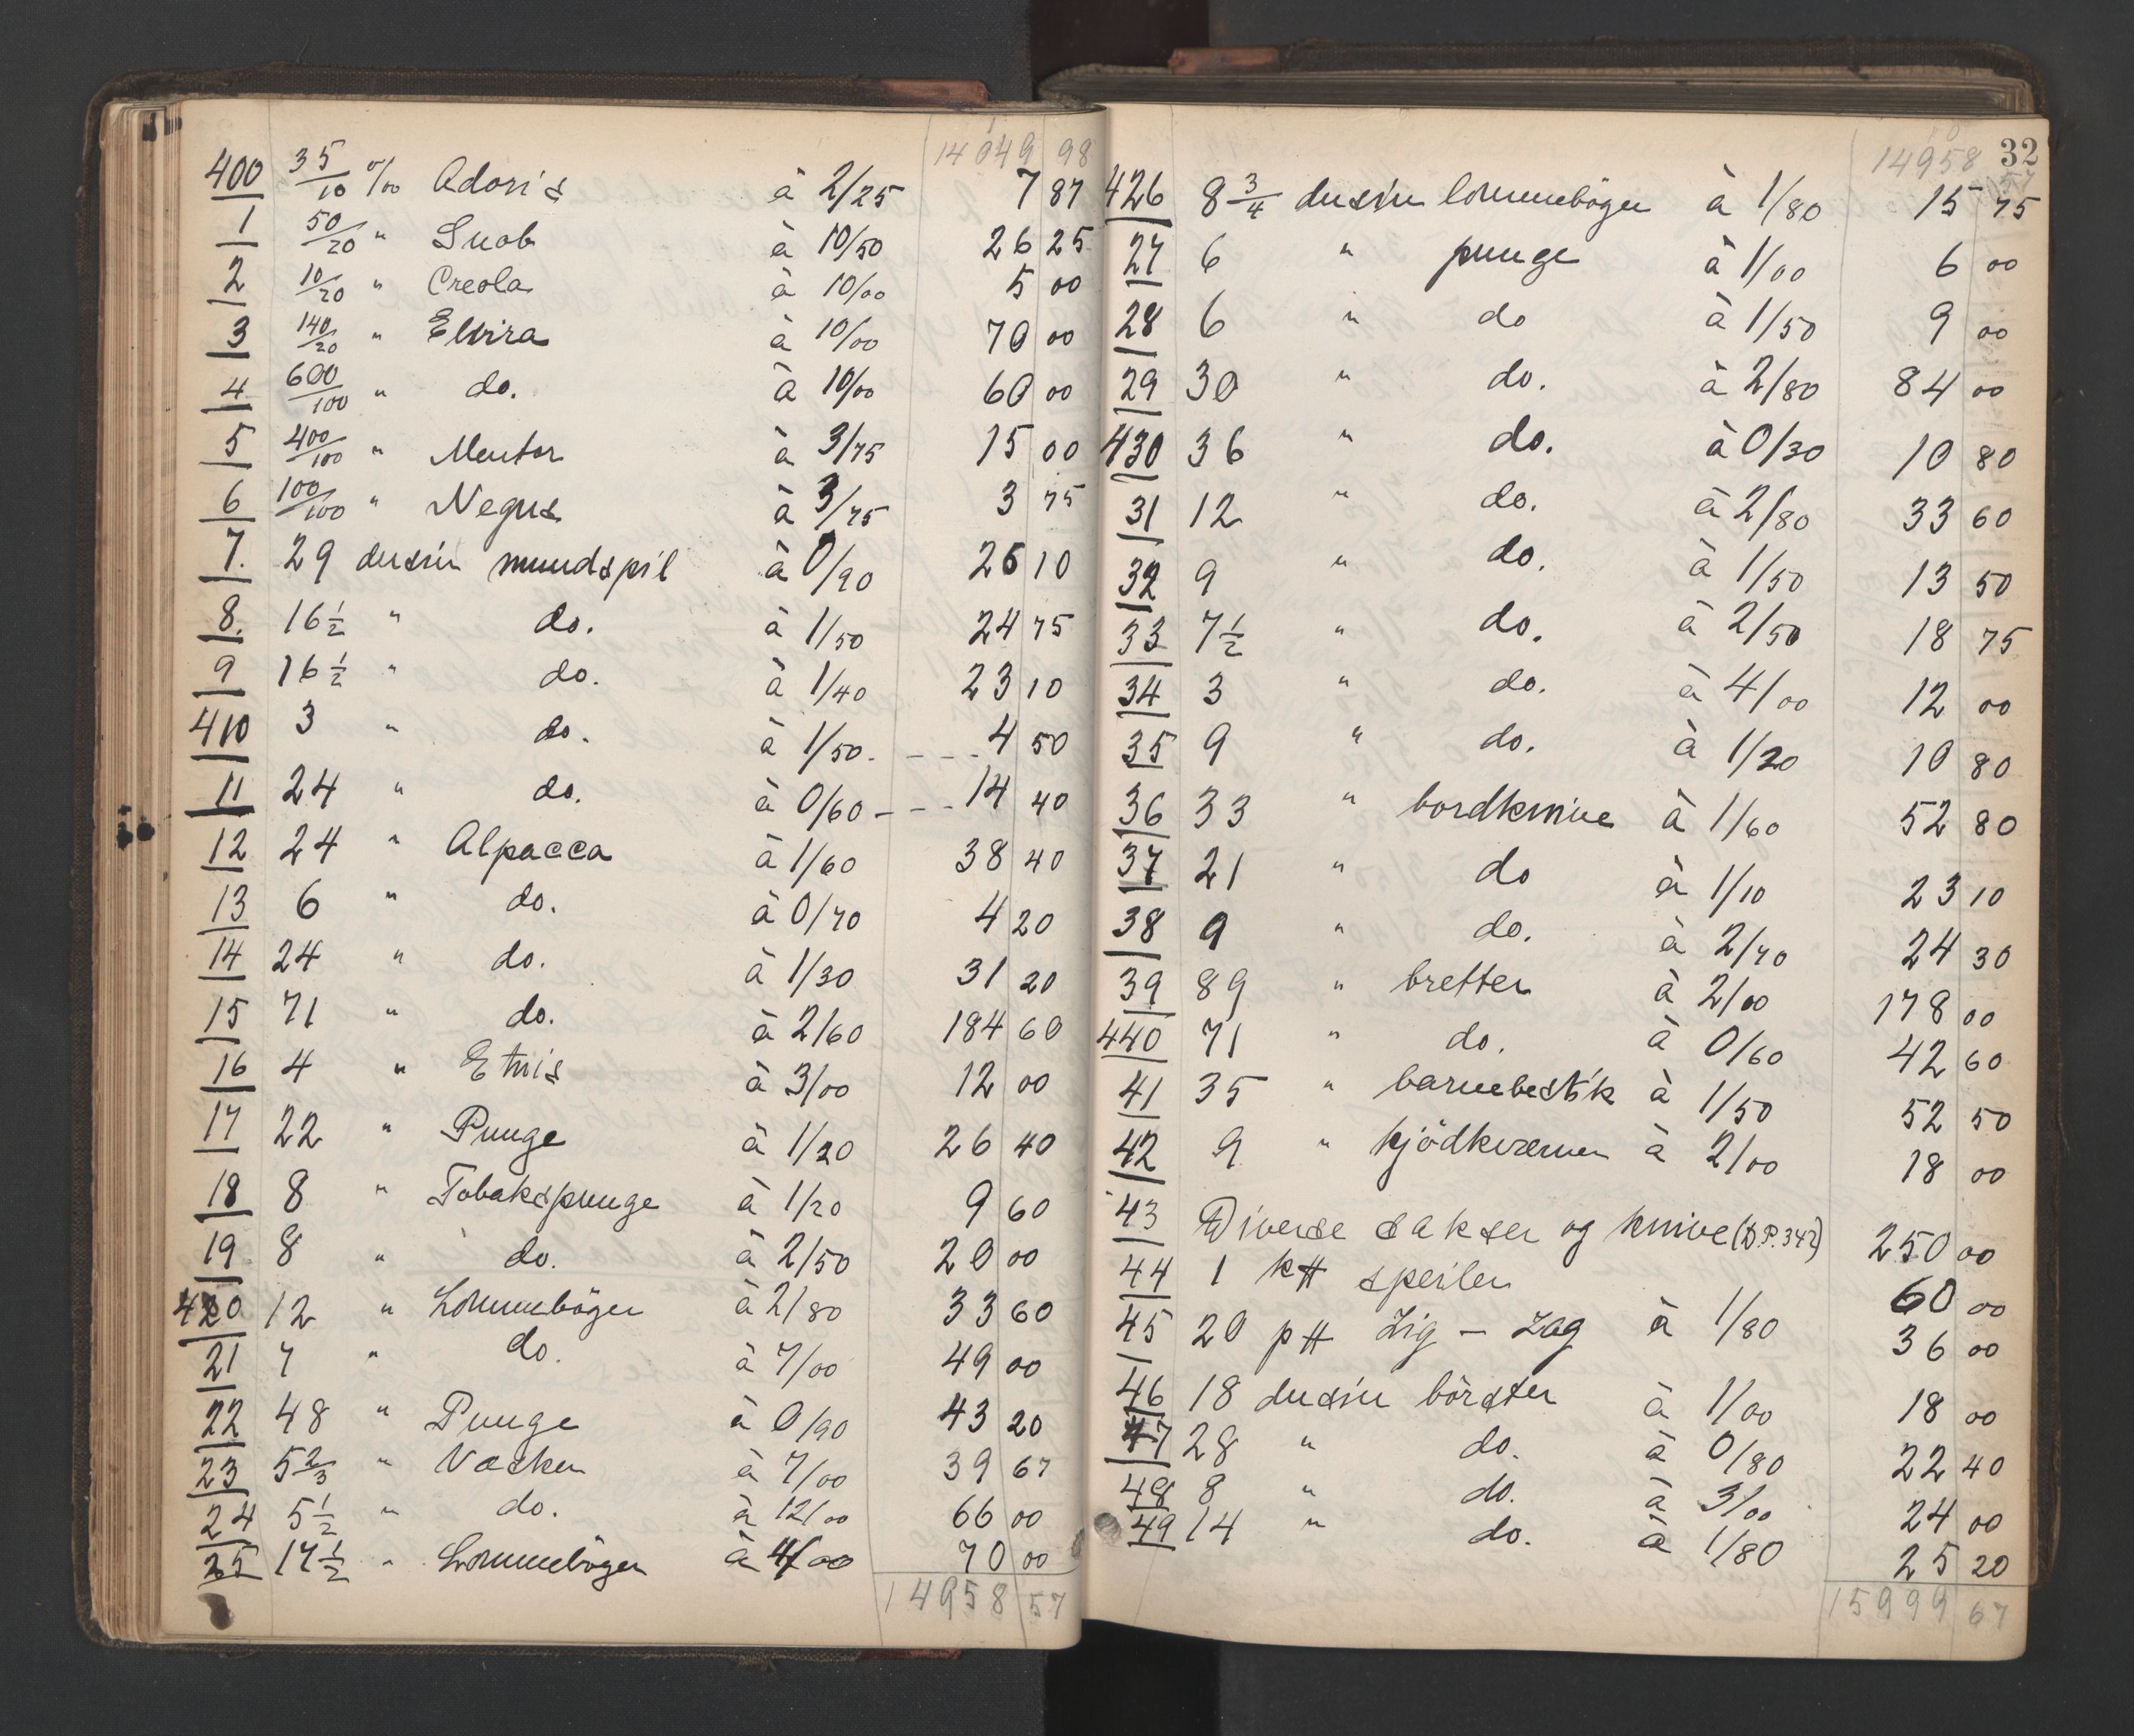 14049 98
400 35/10 o/oo Adoris à 2/25 7 87
1 50/20 " Snob à 10/50 26 25
2 10/20 " Creola à 10/00 5 00
3 140/20 " Elvira à 10/00 70 00
4 600/100 " do. à 10/00 60 00
5 400/100 " Mentor à 3/75 15 00
6 100/100 " Negus à 3/75 3 75
7. 29 dusin mundspil à 0/90 26 10
8. 16 1/2 " do. à 1/50 24 75
9 16 1/2 " do. à 1/40 23 10
410 3 " do. à 1/50. - - - 4 50
11 24 " do. à 0/60 - - - 14 40
12 24 " Alpacca à 1/60 38 40
13 6 " do. à 0/70 4 20
14 24 " do. à 1/30 31 20
15 71 " do. à 2/60 184 60
16 4 " Etuis à 3/00 12 00
17 22 " Punge à 1/20 26 40
18 8 " Tobakspunge à 1/20 9 60
19 8 " do. à 2/50 20 00
420 12 " Lommebøger à 2/80 33 60
21 7 " do. à 7/00 49 00
22 48 " Punge à 0/90 43 20
23 5 2/3 " Vasker à 7/00 39 67
24 5 1/2 " do. à 12/00 66 00
25 17 1/2 " Lommebøger à 4/00 70 00
14958 57
32
14958 57
426 8 3/4 dusin lommebøger à 1/80 15 75
27 6 " punge à 1/00 6 00
28 6 " do à 1/50 9 00
29 30 " do. à 2/80 84 00
430 36 " do. à 0/30 10 80
31 12 " do. à 2/80 33 60
32 9 " do. à 1/50 13 50
33 7 1/2 " do. à 2/50 18 75
34 3 " do. à 4/00 12 00
35 9 " do. à 1/20 10 80
36 33 " bordknive à 1/60 52 80
37 21 " do à 1/10 23 10
38 9 " do. à 2/70 24 30
39 89 " bretter à 2/00 178 00
440 71 " do. à 0/60 42 60
41 35 " barnebestik à 1/50 52 50
42 9 " kjödkverner à 2/00 18 00
43 Diverse sakser og knive (D.P. 347) 250 00
44 1 k# speiler 60 00
45 20 p# Zig - Zag à 1/80 36 00
46 18 dusin börster à 1/00 18 00
47 28 " do. à 0/80 22 40
48 8 " do. à 3/00 24 00
49 14 " do. à 1/80 25 20
15999 67